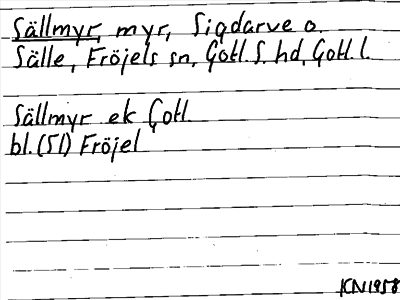 Sällmyr, myr, Sigdarve o.
Sälle, Fröjels sn, Gotl. S. hd, Gotl. l.
Sällmyr ek Gotl
bl. (51) Fröjel
KN 1958